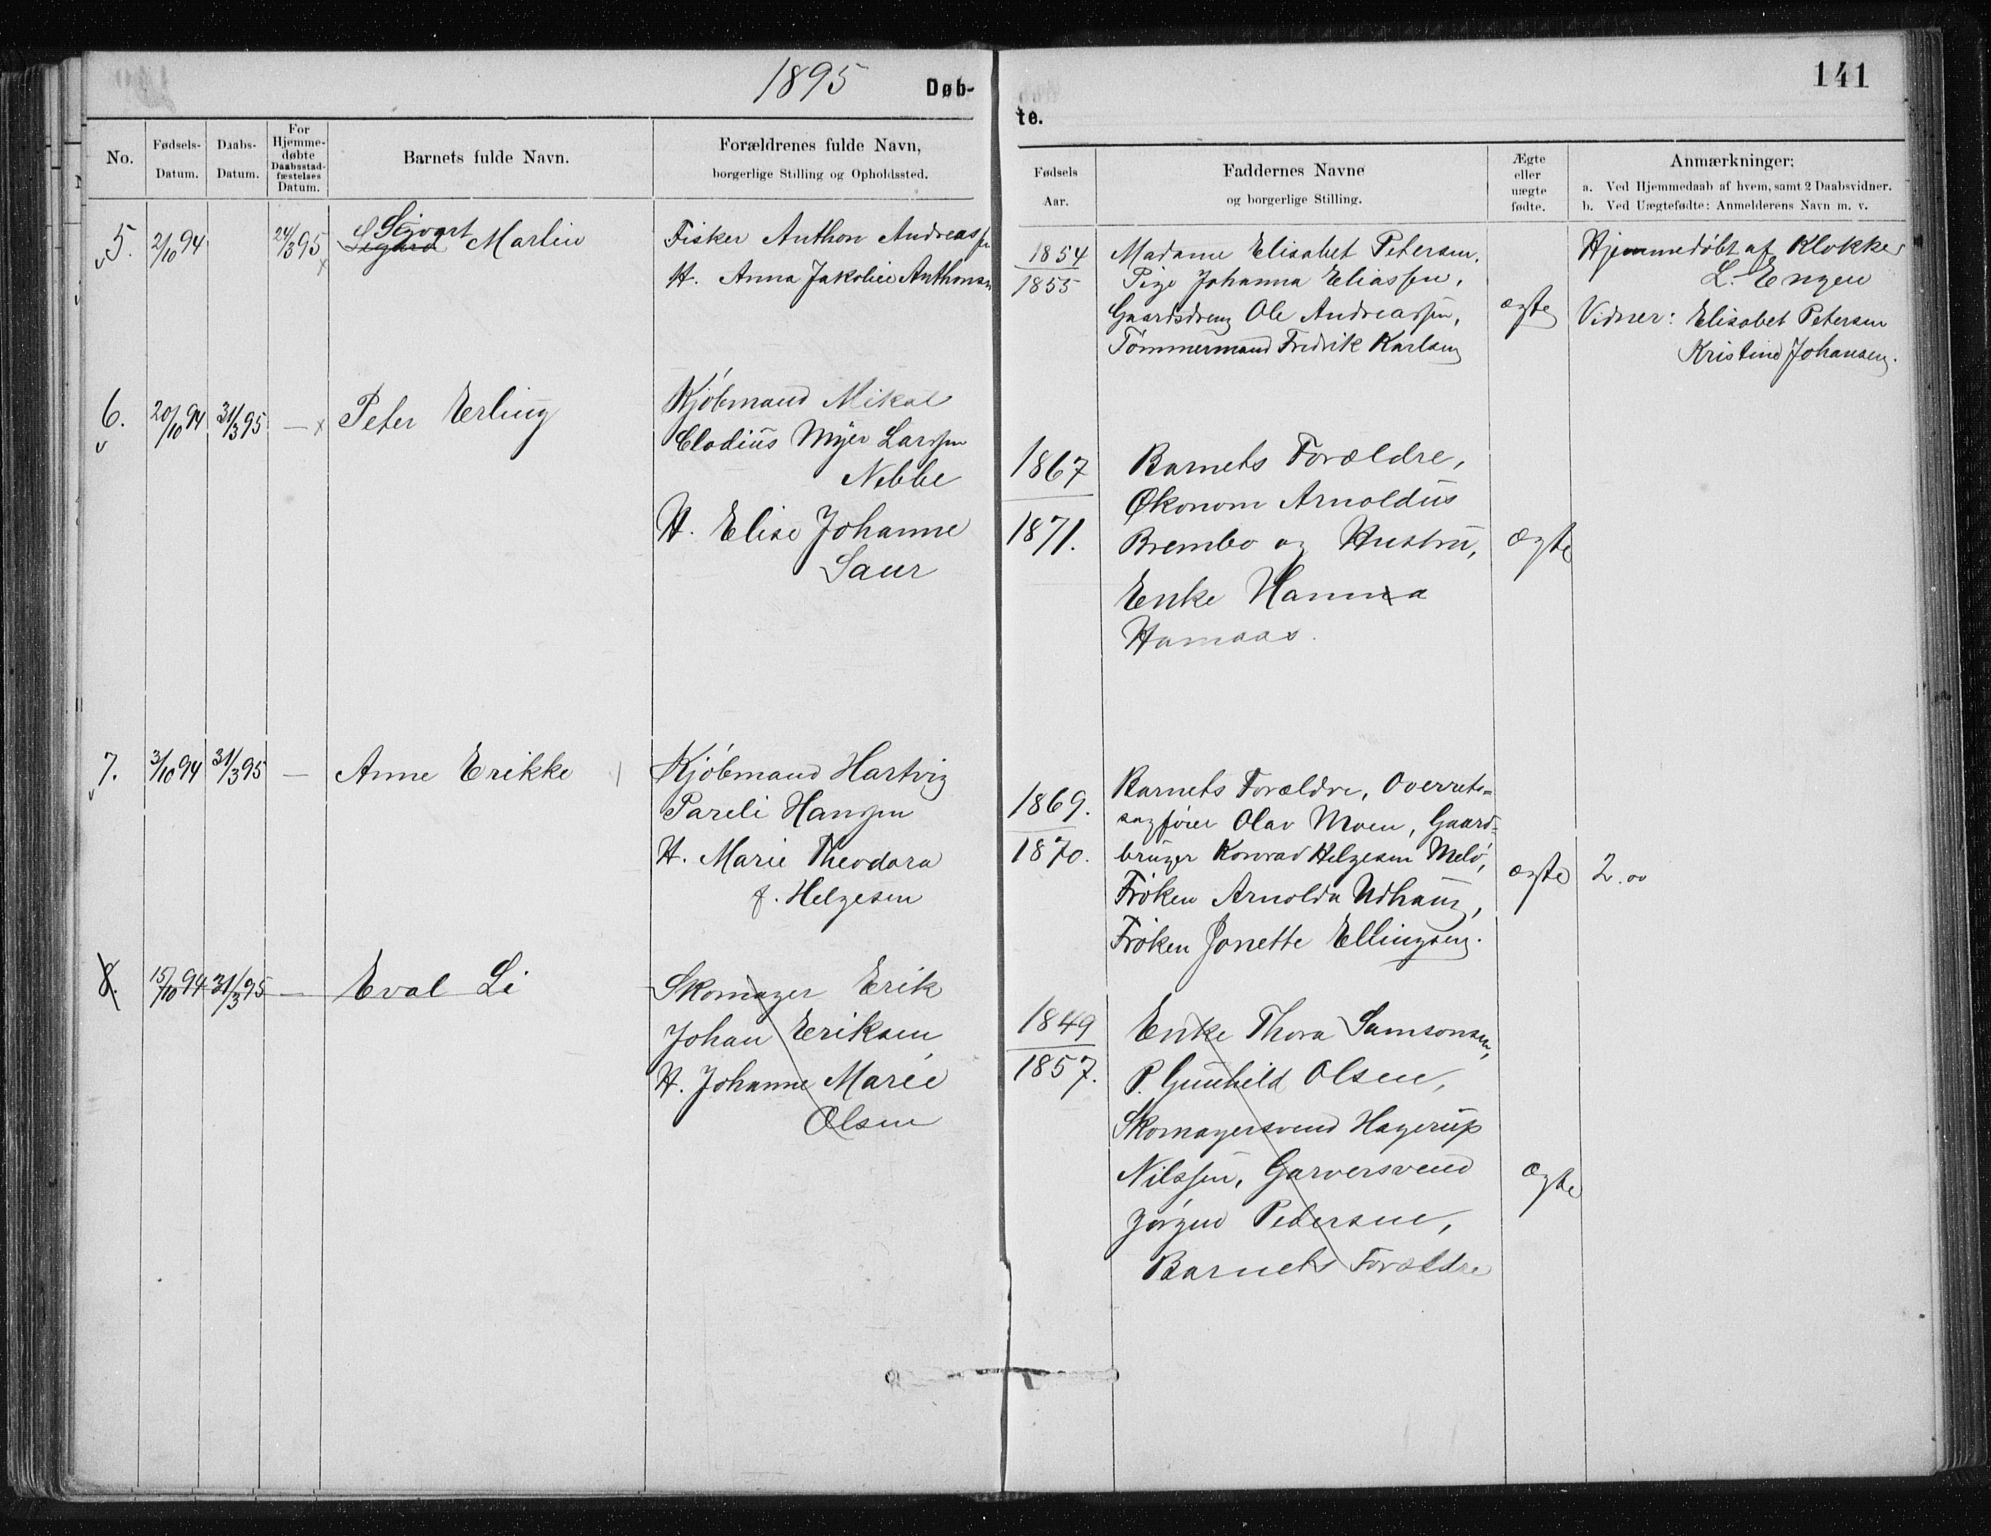 1895
Døb-
te.
141
No.
Fødsels-
Datum.
Daabs-
Datum.
For
Hjemme-
døbte
Daabsstad-
fæstelses
Datum.
Barnets fulde Navn.
Forældrenes fulde Navn,
borgerlige Stilling og Opholdssted.
Fødsels
Aar.
Faddernes Navne
og borgerlige Stilling.
Ægte
eller
uægte
fødte.
Anmærkninger:
a. Ved Hjemmedaab af hvem, samt 2 Daabsvidner.
b. Ved Uægtefødte: Anmelderens Navn m. v.
5. 2/10 94 24/3 95
Sigvart
Sigurd Martin
Fisker Anthon Andreassen
H. Anna Jakobie Anthonsen
1854
1855
Madame Elisabet Petersen,
Pige Johanna Eliassen,
Gaardsdreng Ole Andreassen,
Tømmermand Fredrik Karlsen
ægte
Hjemmedøbt af Klokker
L. Engen
Vidner: Elisabet Petersen
Kristine Johansen.
6. 20/10 94 31/3 95 —
Peter Erling
Kjøbmand Mikal
Clodius Myer Larssen
Nebbe
H. Elise Johanne
Saur
1867
1871.
Barnets Forældre,
Økonom Arnoldus
Brembo og Hustru,
Enke Hanna
Hamaas.
ægte
7. 3/10 94 31/3 95 —
Anne Erikke
Kjøbmand Hartvig
Pareli Hanssen
H. Marie Theodora
f. Helgesen
1869.
1870.
Barnets Forældre, Overrets-
sagfører Olav Moen, Gaard-
bruger Konrad Helgesen Melø,
Frøken Arnolda Udhaug,
Frøken Jonette Ellingsen.
ægte
2.00
8. 15/10 94 31/3 95 —
Eval Li
Skomager Erik
Johan Eriksen
H. Johanne Marie
Olsen
1849
1857.
Enke Thora Samsonsen,
P. Gunhild Olsen,
Skomagersvend Hagerup
Nilssen, Garversvend
Jørgen Pedersen,
Barnets Forældre
ægte